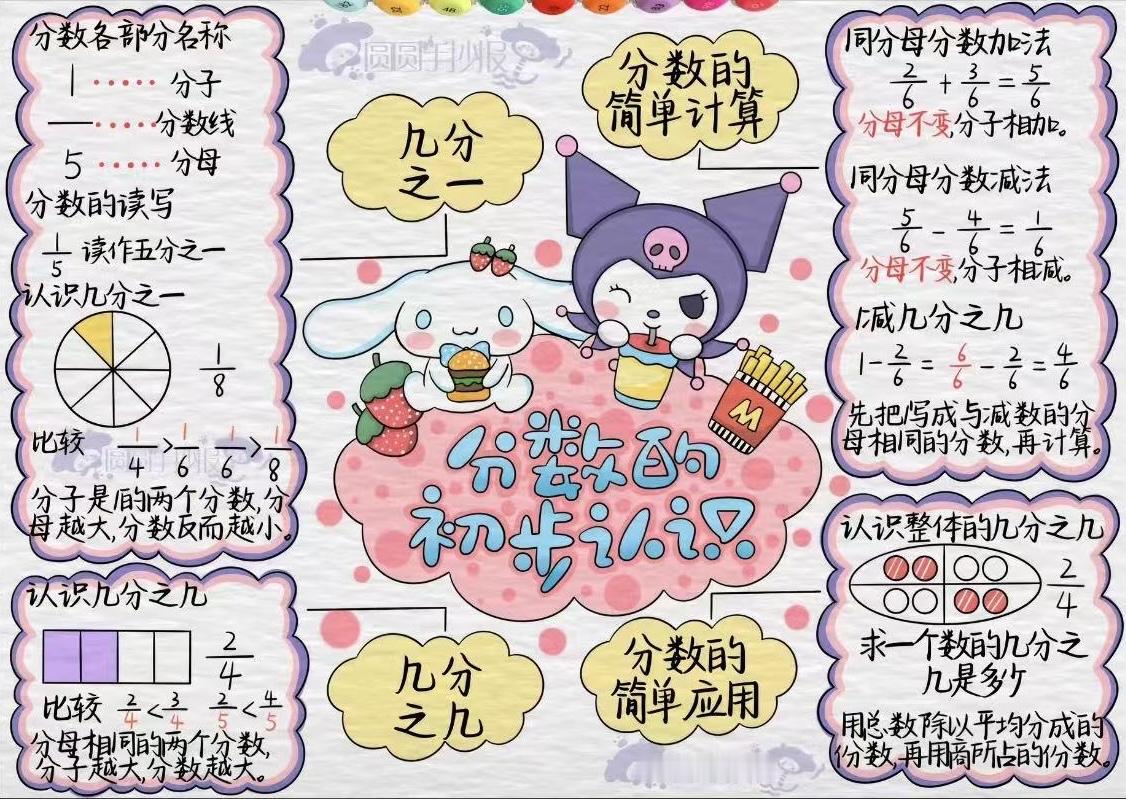 分数各部分名称
1 ····· 分子
—·····分数线
5 ····· 分母
分数的读写
1/5 读作五分之一
认识几分之一
1/8
比较 1/4>1/6 1/6>1/8
分子是1的两个分数,分
母越大,分数反而越小。
认识几分之几
2/4
比较 2/4<3/4 2/5<4/5
分母相同的两个分数,
分子越大,分数越大。
圆圆手抄报
几分
之一
分数的
简单计算
M
分数的
初步认识
圆圆手抄报
几分
之几
分数的
简单应用
同分母分数加法
2/6 + 3/6 = 5/6
分母不变,分子相加。
同分母分数减法
5/6 - 4/6 = 1/6
分母不变,分子相减。
1减几分之几
1-2/6 = 6/6 - 2/6 = 4/6
先把1写成与减数的分
母相同的分数,再计算。
认识整体的几分之几
2/4
求一个数的几分之
几是多少
用总数除以平均分成的
份数,再用商所占的份数。